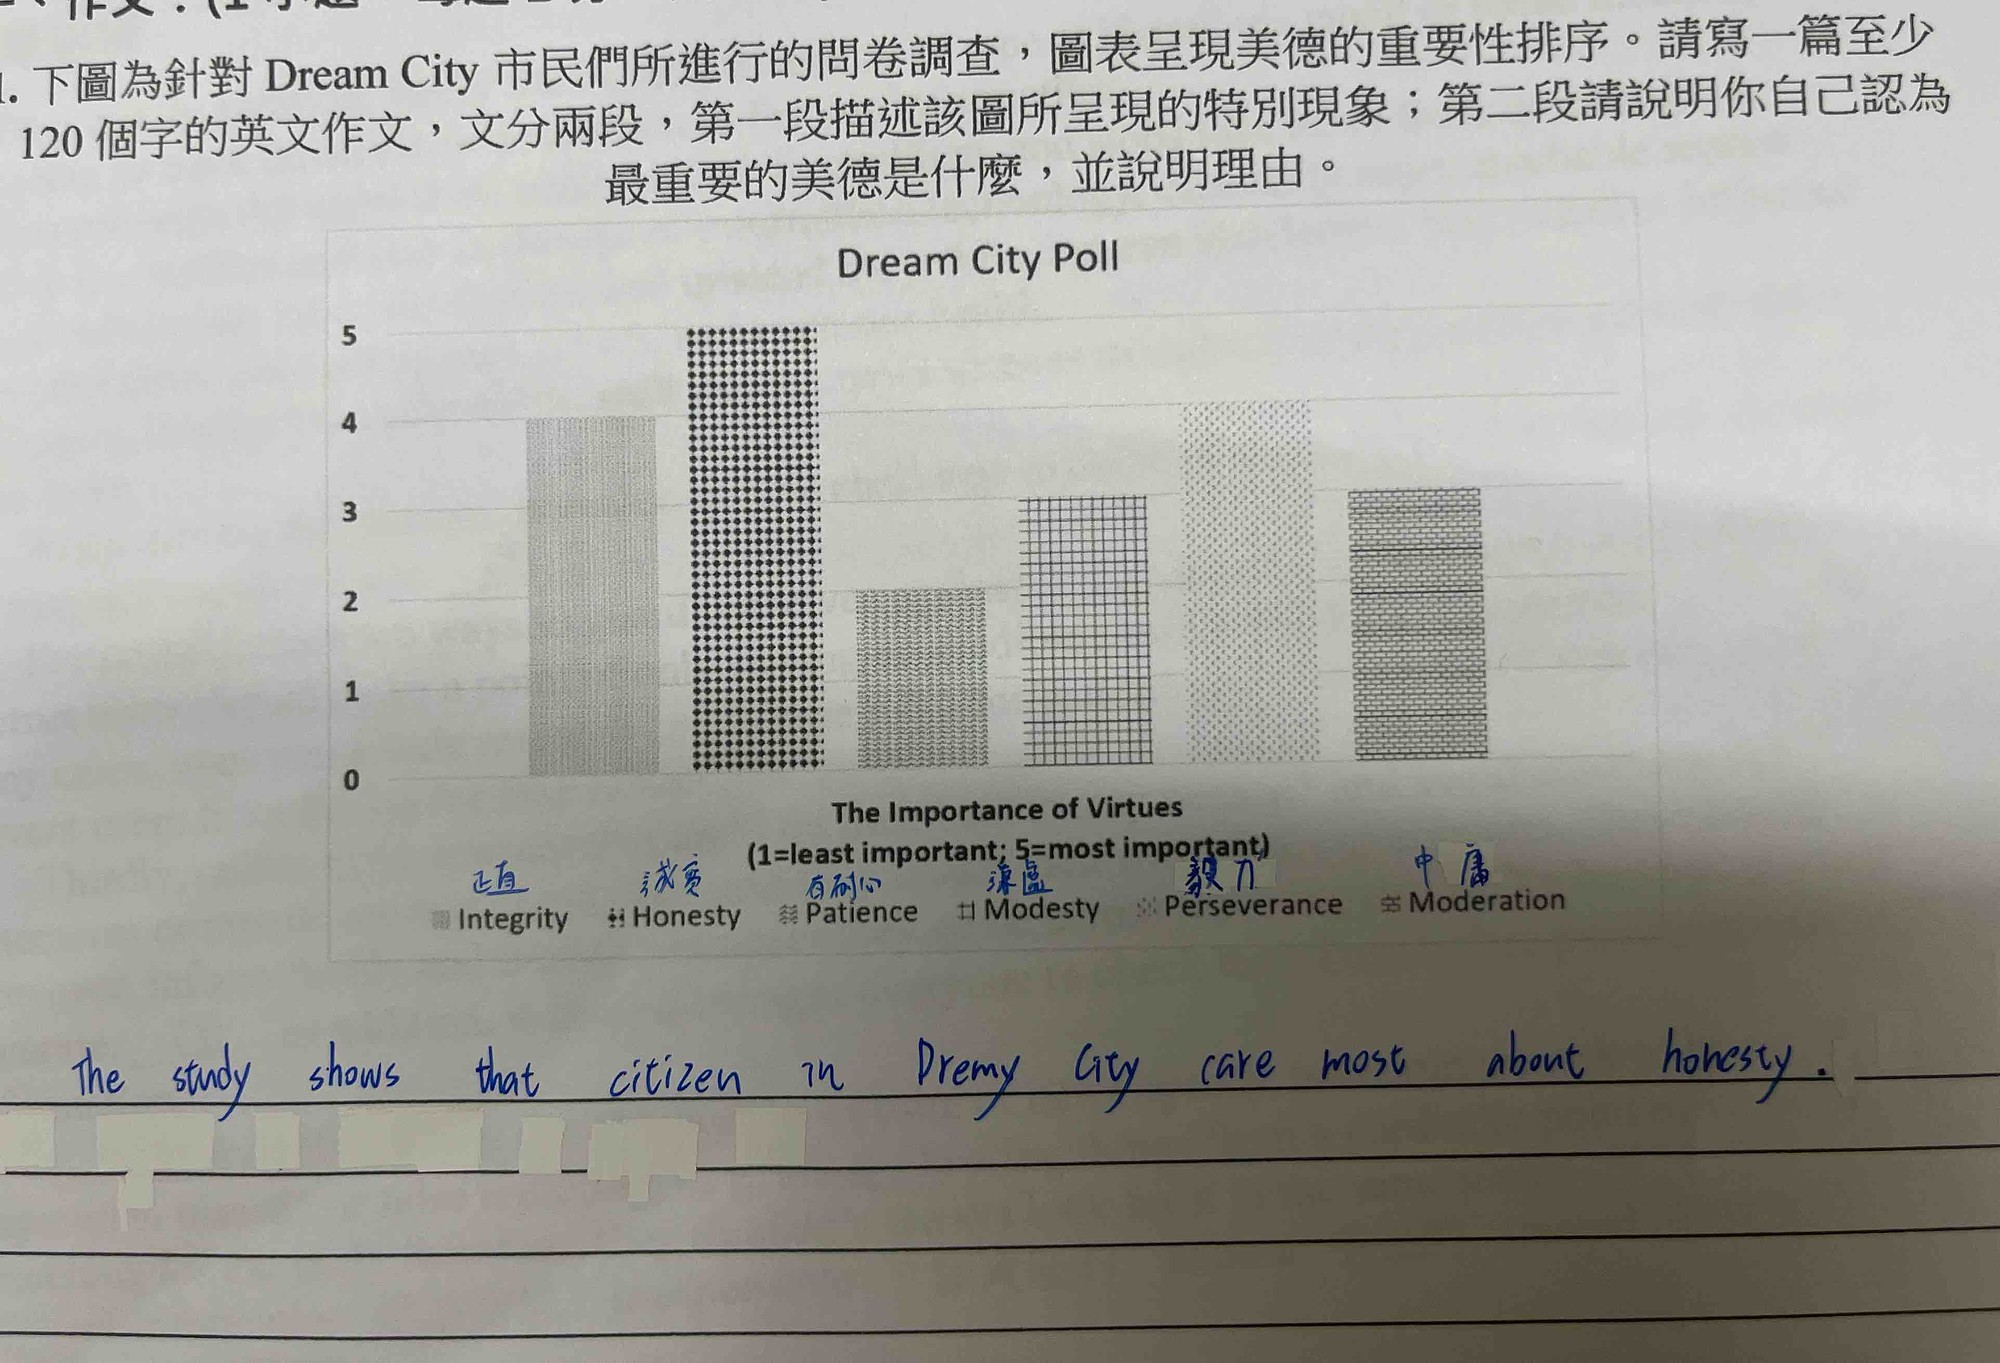 1. 下圖為針對 Dream City 市民們所進行的問卷調查，圖表呈現美德的重要性排序。請寫一篇至少
120 個字的英文作文，文分兩段，第一段描述該圖所呈現的特別現象；第二段請說明你自己認為
最重要的美德是什麼，並說明理由。
Dream City Poll
5
4
3
2
1
0
The Importance of Virtues
(1=least important; 5=most important)
正直 誠實 有耐心 謙虛 毅力 中庸
Integrity Honesty Patience Modesty Perseverance Moderation
The study shows that citizen in Dremy City care most about honesty.